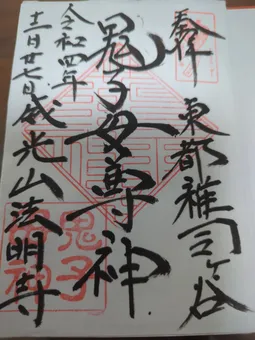 奉拝 東都雑司ヶ谷
鬼子母尊神
令和四年
十一月廿七日 威光山法明寺
鬼子母神